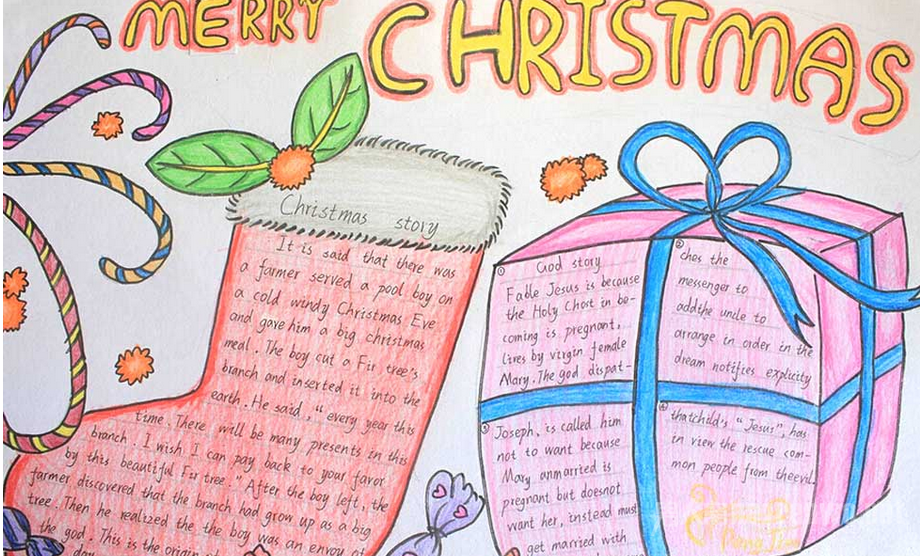 MERRY
CHRISTMAS
Christmas story
It is said that there was
a farmer served a pool boy on
a cold windy Christmas Eve
and gave him a big christmas
meal. The boy cut a Fir tree's
branch and inserted it into the
earth. He said, "every year this
time. There will be many presents in this
branch. I wish I can pay back to your favor
by this beautiful Fir tree." After the boy left, the
farmer discovered that the branch had grow up as a big
tree. Then he realized the the boy was an envoy of
the god. This is the origin of
day
① God story
Fable Jesus is because
the Holy Ghost in be-
coming is pregnant,
lives by virgin female
Mary. The god dispat-
② ches the
messenger to
addthe uncle to
arrange in order in the
dream notifies explicity
③ Joseph, is called him
not to want because
Mary anmarried is
pregnant but doesnot
want her, instead must
get married with
④ thatchild's "Jesus", has
in view the rescue com-
mon people from theevil.